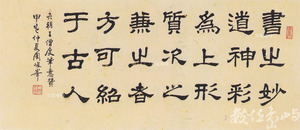 書之妙
道神彩
為上形
質次之
兼之者
方可紹
于古人
王僧虔筆意贊
仲夏